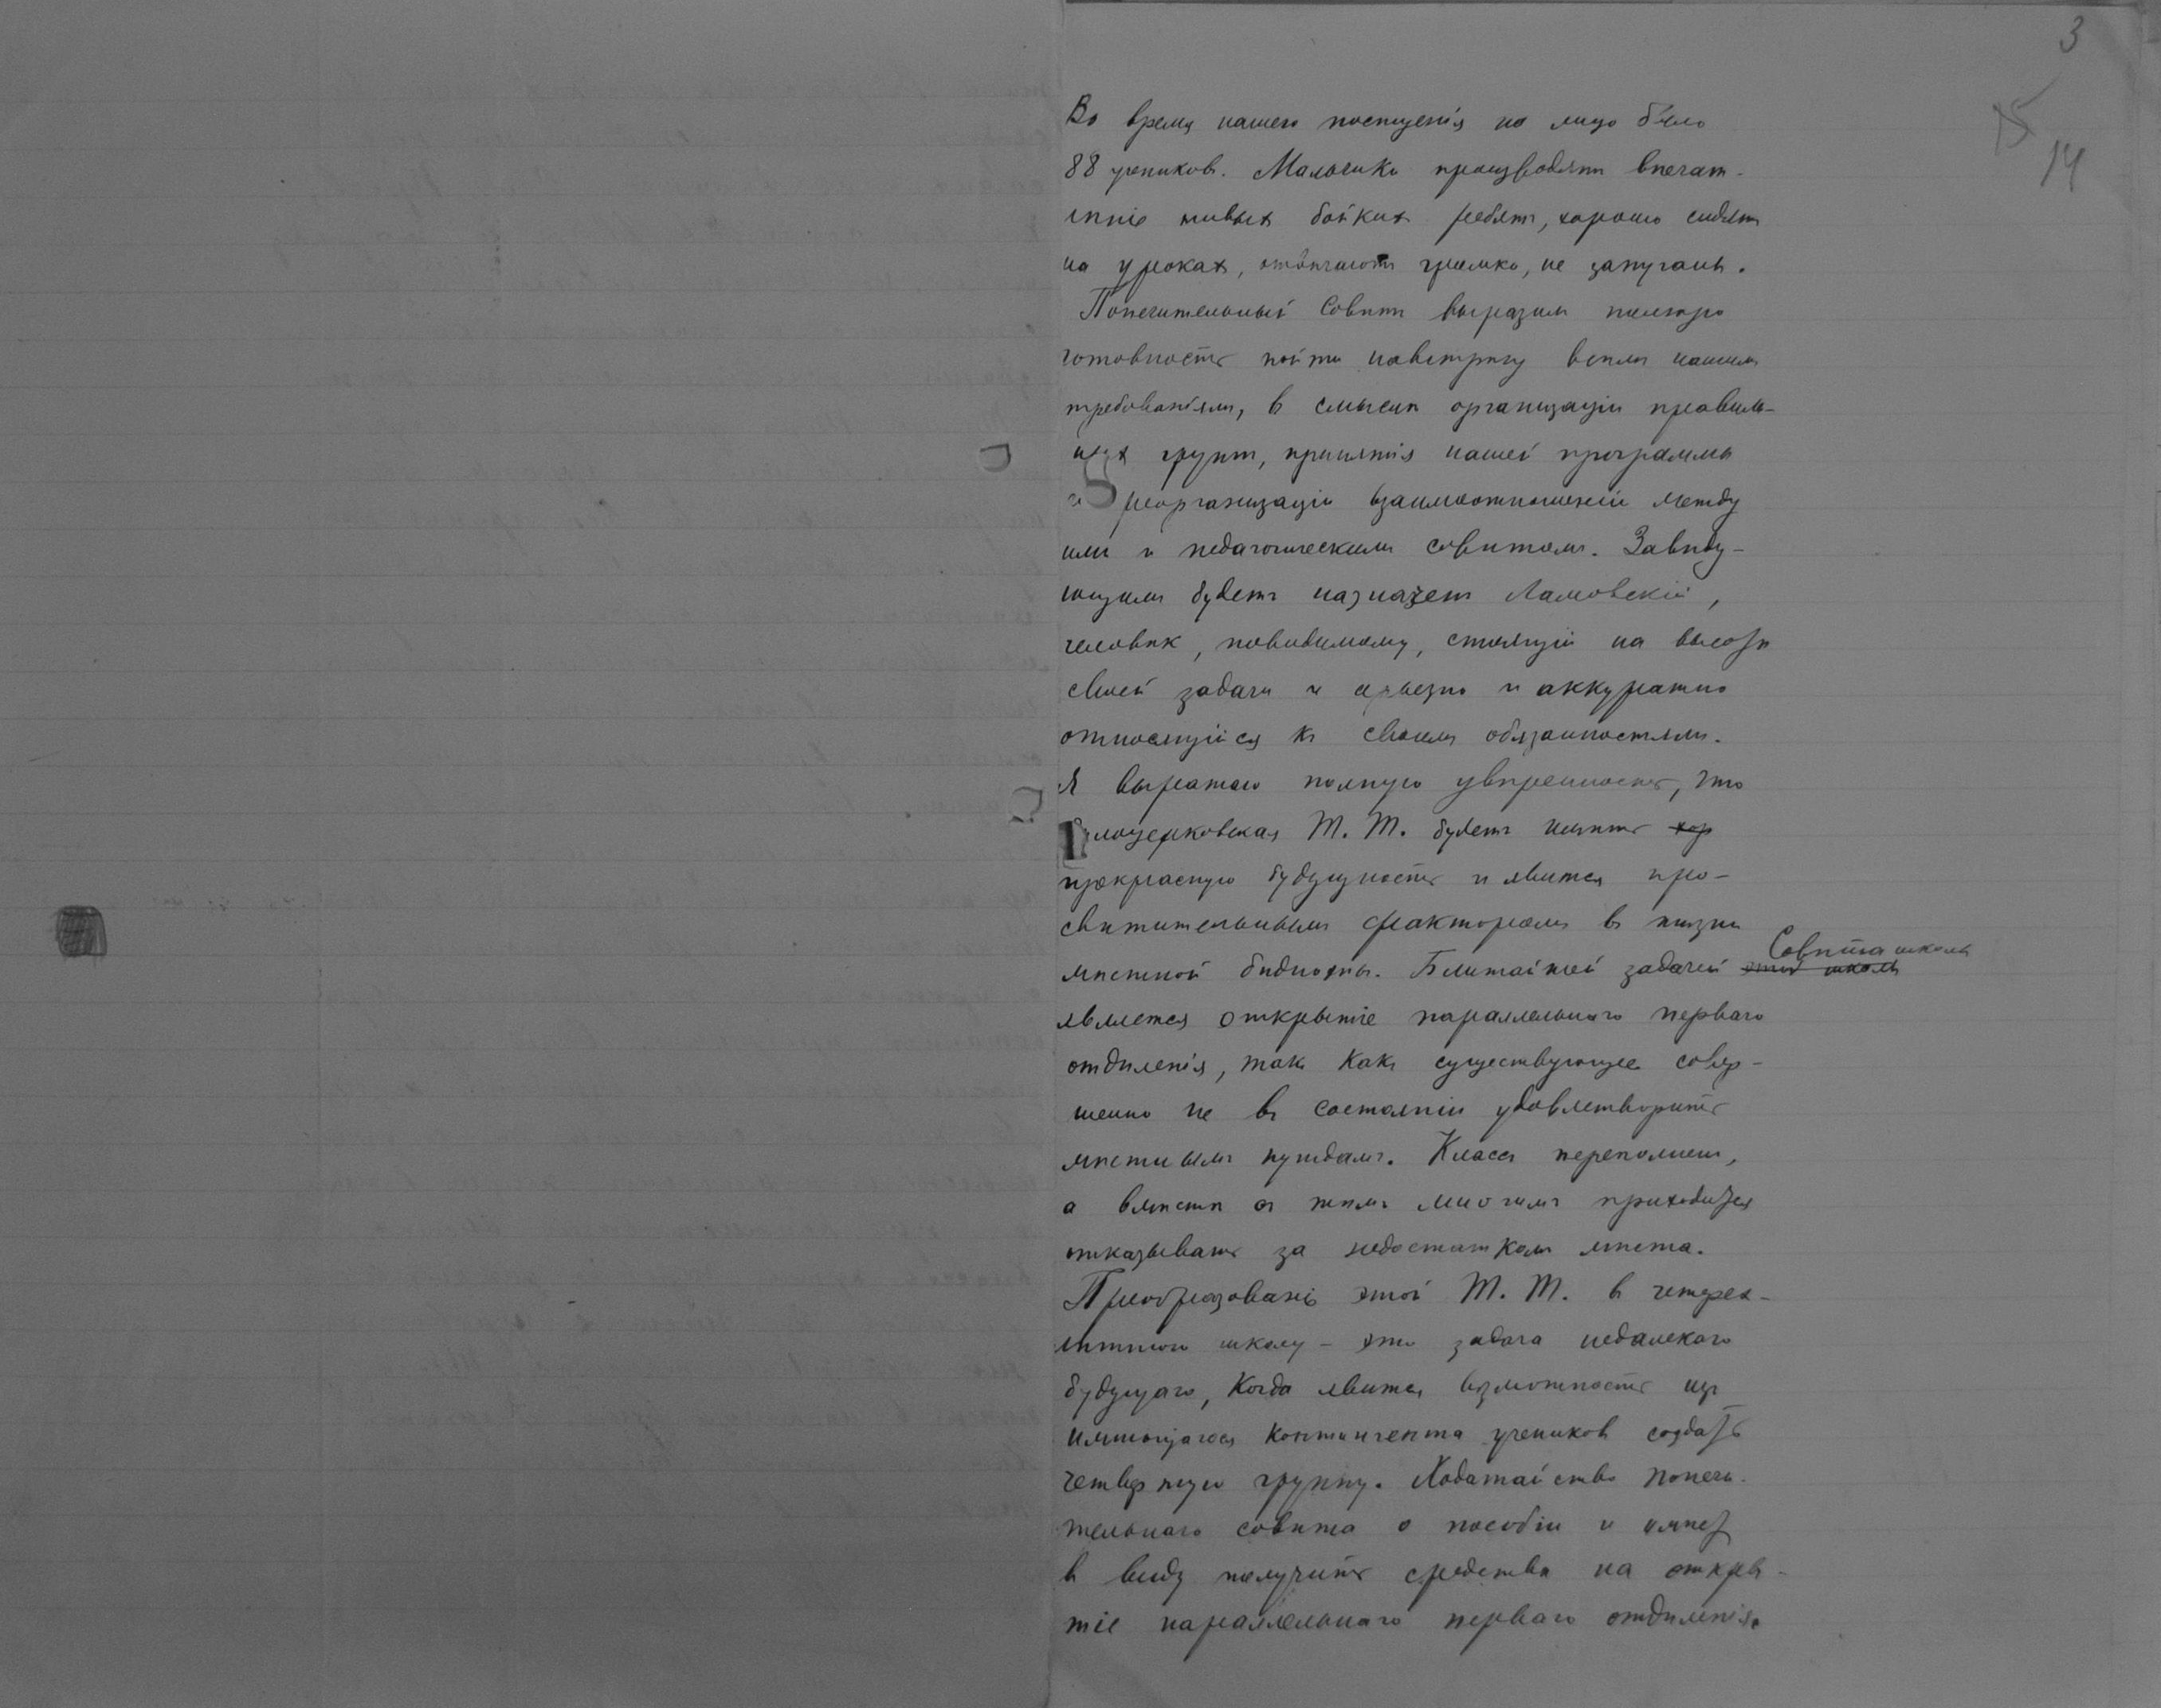 3
15
14
Во время нашего посѣщенія на лицо было
88 учеников. Мальчики производятъ впечат-
лѣніе живых бойких ребятъ, хорошо сидятъ
на уроках, отвѣчаютъ громко, не запуганы.
Попечительный Совѣтъ выразилъ полную
готовность пойти навстрѣчу всѣмъ нашимъ
требованіямъ, в смыслѣ организаціи правиль-
ных групп, принятія нашей программы
и реорганизаціи взаимоотношеній между
ним и педагогическимъ совѣтомъ. Завѣду-
ющимъ будетъ назначенъ Ламовскій,
человѣк, повидимому, стоящій на высотѣ
своей задачи и серьезно и аккуратно
относящійся къ своимъ обязанностямъ.
Я выражаю полную увѣренность, что
Бѣлоцерковская Т. Т. будетъ имѣть хор
прекрасную будущность и явится про-
свѣтительнымъ факторомъ въ жизни
Совѣта школы
мѣстной бѣдноты. Ближайшей задачей этой школы
является открытіе параллельнаго перваго
отдѣленія, такъ какъ существующее совер-
шенно не въ состояніи удовлетворить
мѣстнымъ нуждамъ. Классъ переполненъ,
а вмѣстѣ съ тѣмъ многимъ приходится
отказывать за недостаткомъ мѣста.
Преобразованіе этой Т. Т. в четырех-
лѣтнюю школу - это задача недалекаго
будущаго, когда явится возможность изъ
имѣющагося контингента учеников создать
четвертую группу. Ходатайство попечи-
тельнаго совѣта о пособіи и имѣет
в виду получить средства на откры-
тіе параллельнаго перваго отдѣленія.